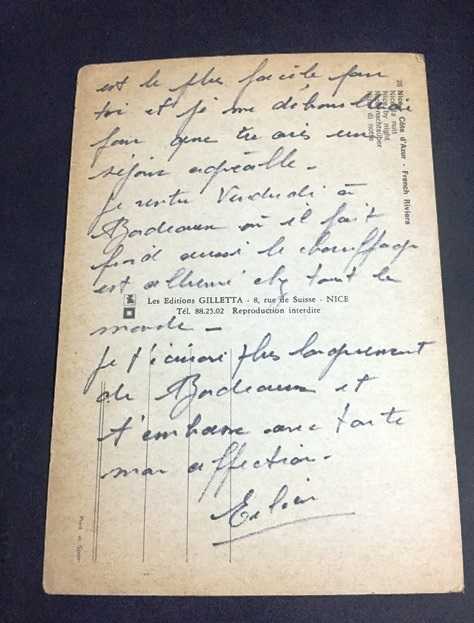 est le plus facile pour
toi et je me débrouillerai
pour que tu aies un
séjour agréable.
je rentre Vendredi à
Bordeaux où il fait
froid aussi le chauffage
est allumé chez tout le
monde -
je t'écrirai plus longuement
de Bordeaux et
t'embrasse avec toute
mon affection.
Les Editions GILLETTA - 8, rue de Suisse - NICE
Tél. 88.25.02 Reproduction interdite
Côte d'Azur - French Riviera
Nice by night